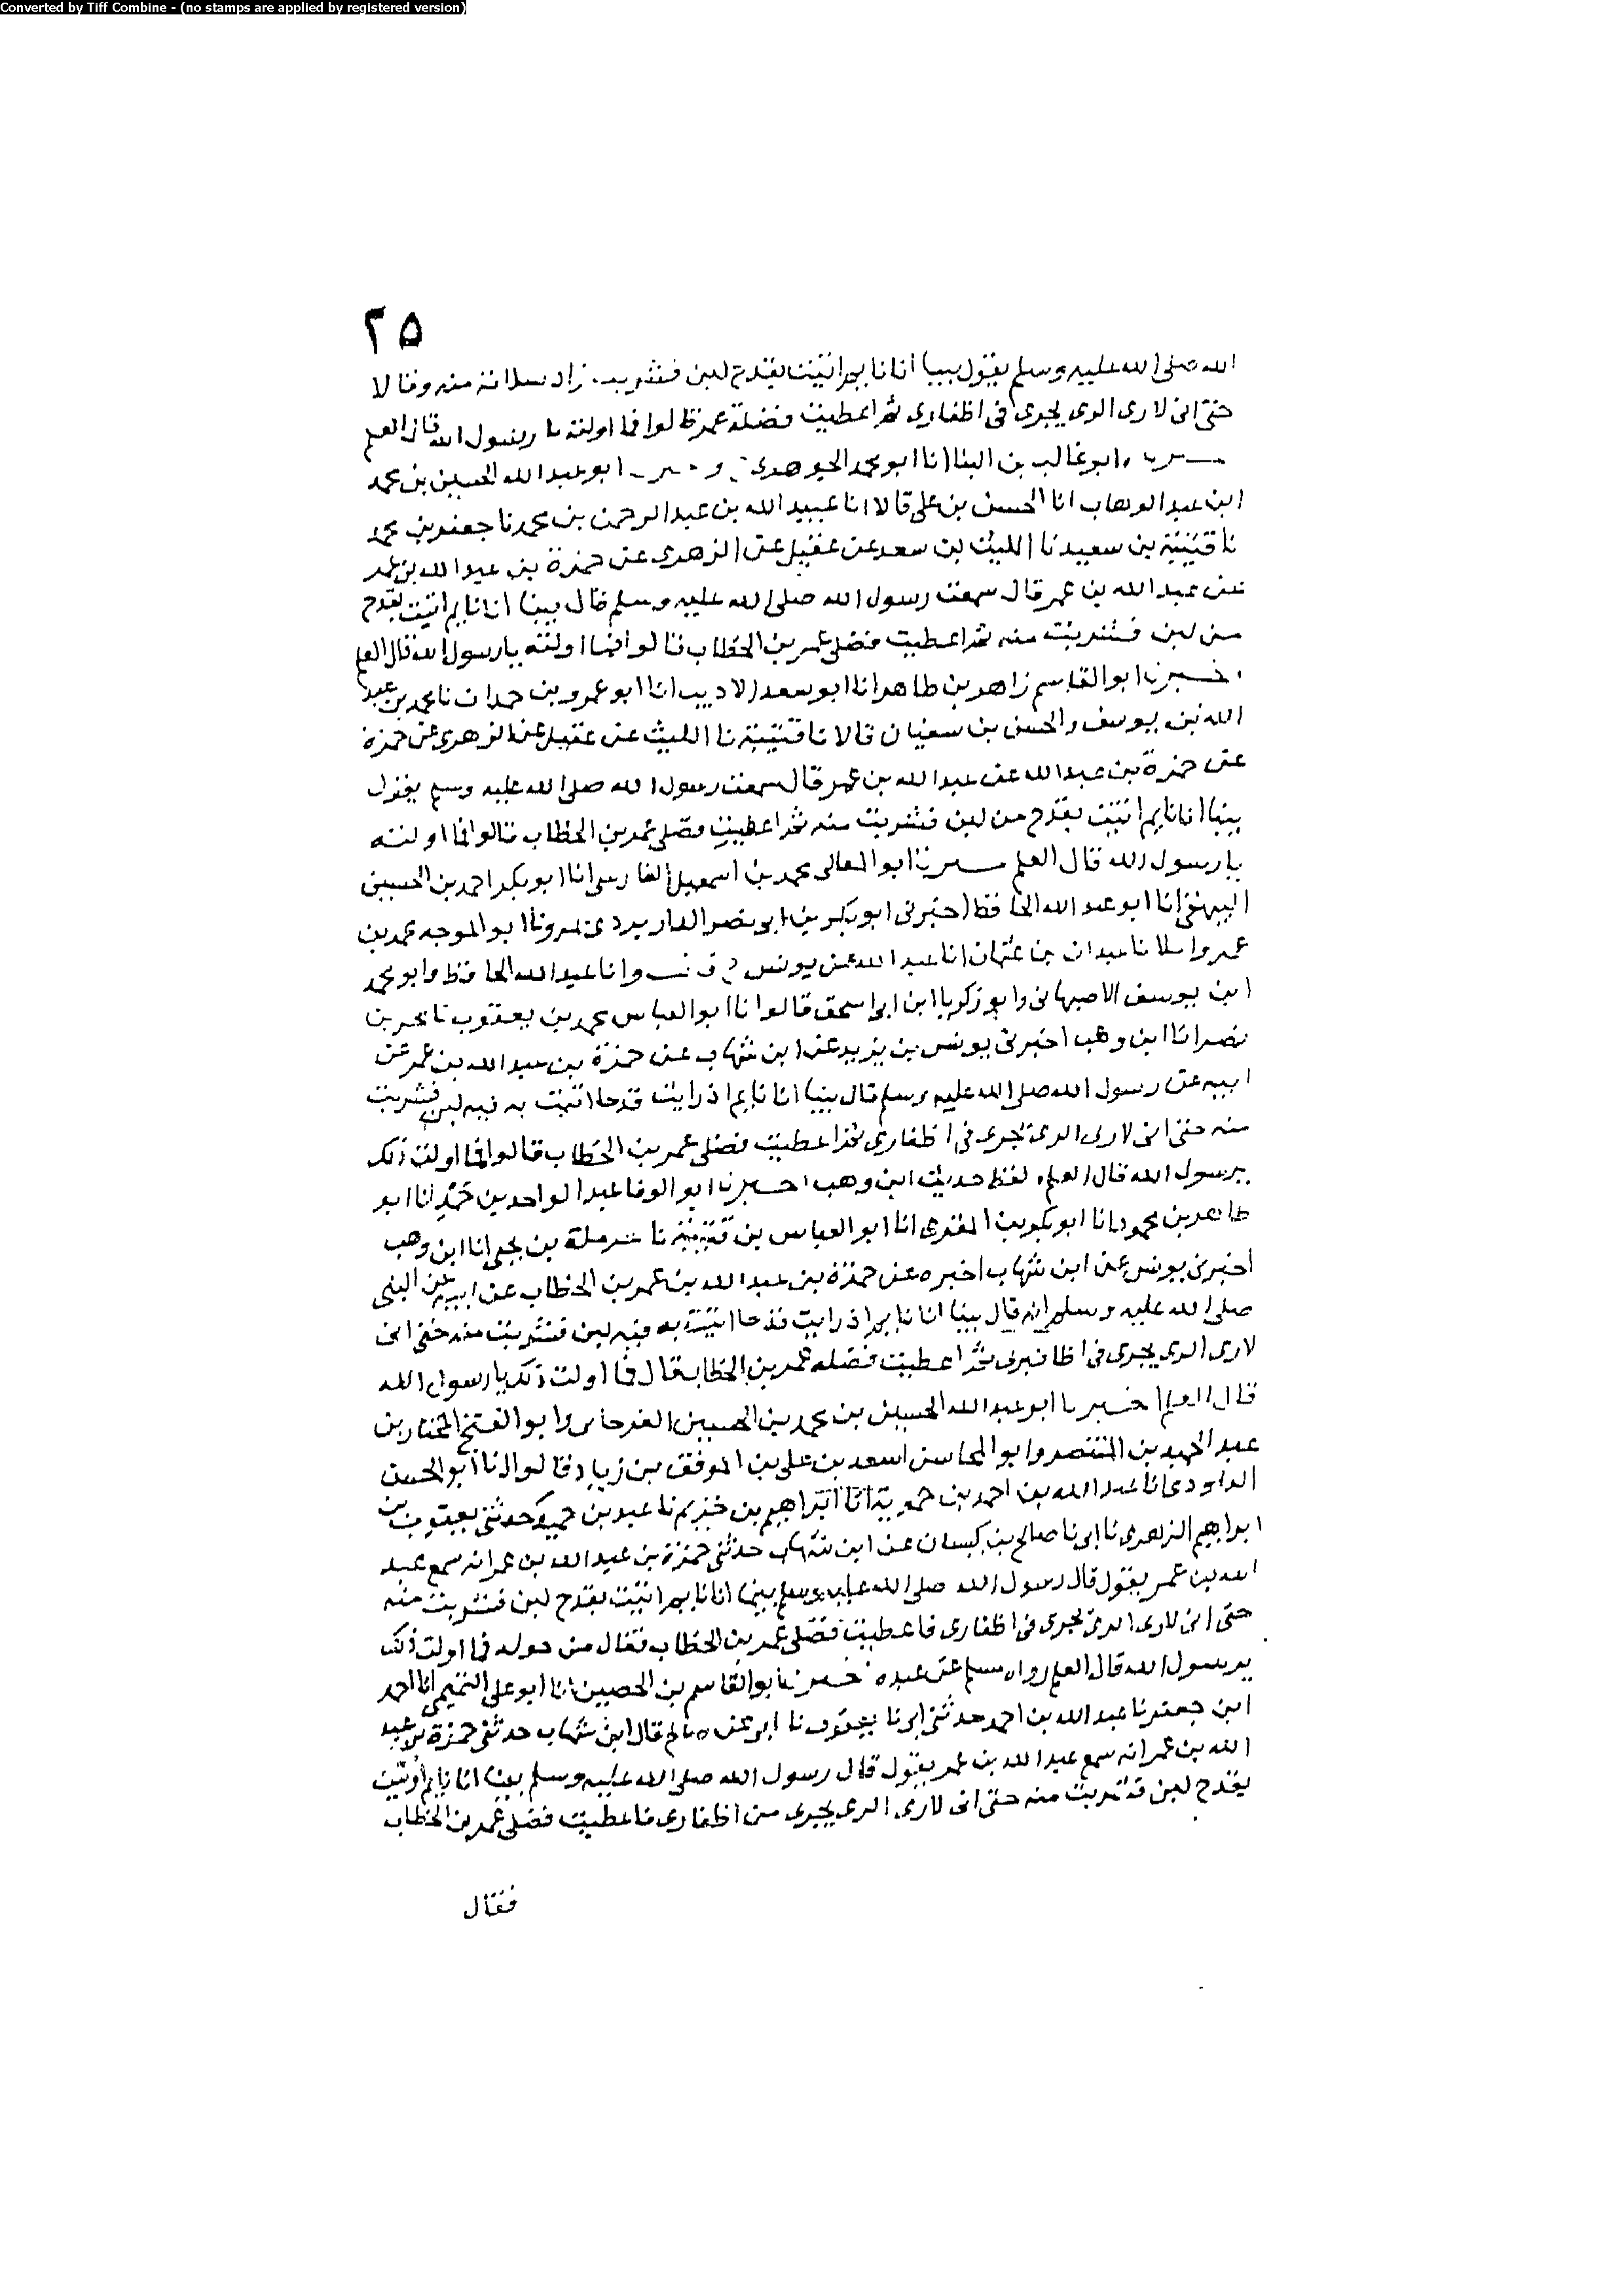 Converted by Tiff Combine - (no stamps are applied by registered version)
٢٥
الله صلى الله عليه وسلم يقول بينا انا نايم اتيت بقدح لبن فشربت زاد سلامة منه وقالا
حتى انى لارى الرى يجرى فى اظفارى ثم اعطيت فضلة عمر قالوا فما اولته يا رسول الله قال العلم
ابو غالب بن البنا انا ابو محمد الجوهرى و ابو عبد الله الحسين بن محمد
ابن عبد الوهاب انا الحسن بن على قالا انا عبيد الله بن عبد الرحمن بن محمد نا جعفر بن محمد
نا قتيبة بن سعيد نا الليث بن سعد عن عقيل عن الزهرى عن حمزة بن عبد الله بن عمر
عن عبد الله بن عمر قال سمعت رسول الله صلى الله عليه وسلم قال بينا انا نايم اتيت بقدح
من لبن فشربت منه ثم اعطيت فضلى عمر بن الخطاب قالوا فما اولته يا رسول الله قال العلم
اخبرنا ابو القاسم زاهر بن طاهر انا ابو سعد الاديب انا ابو عمرو بن حمدان نا محمد بن عبد
الله بن يوسف والحسن بن سفيان قالا نا قتيبة نا الليث عن عقيل عن الزهرى عن حمزة
عن حمزة بن عبد الله عن عبد الله بن عمر قال سمعت رسول الله صلى الله عليه وسلم يقول
بينا انا نايم اتيت بقدح من لبن فشربت منه ثم اعطيت فضلى عمر بن الخطاب قالوا فما اولته
يا رسول الله قال العلم اخبرنا ابو المعالى محمد بن اسمعيل الفارسى انا ابو بكر احمد بن الحسين
البيهقى انا ابو عبد الله الحافظ اخبرنى ابو بكر بن ابى نصر الداربردى بمرو نا ابو الموجه محمد بن
عمرو املا نا عبدان بن عثمان انا عبد الله عن يونس ح قال وانا عبد الله الحافظ وابو محمد
ابن يوسف الاصبهانى وابو زكريا ابن ابى اسحق قالوا نا ابو العباس محمد بن يعقوب نا بحر بن
نصر انا ابن وهب اخبرنى يونس بن يزيد عن ابن شهاب عن حمزة بن عبد الله بن عمر عن
ابيه عن رسول الله صلى الله عليه وسلم قال بينا انا نايم اذ رايت قدحا اتيت به فيه لبن فشربت
منه حتى انى لارى الرى يجرى فى اظفارى ثم اعطيت فضلى عمر بن الخطاب قالوا فما اولت ذلك
يرسول الله قال العلم لفظ حديث ابن وهب اخبرنا ابو الوفا عبد الواحد بن حمد انا ابو
طاهر بن محمود انا ابو بكر بن المقرى انا ابو العباس بن قتيبة نا حرملة بن يحيى انا ابن وهب
اخبرنى يونس عن ابن شهاب اخبره عن حمزة بن عبد الله بن عمر بن الخطاب عن ابيه عن النبى
صلى الله عليه وسلم انه قال بينا انا نايم اذ رايت قدحا اتيت به فيه لبن فشربت منه حتى انى
لارى الرى يجرى فى اظافيرى ثم اعطيت فضله عمر بن الخطاب قال فما اولت ذلك يا رسول الله
قال العلم اخبرنا ابو عبد الله الحسين بن محمد بن الحسين وابو الفتح المختار بن
عبد الحميد بن المنتصر وابو المحاسن اسعد بن على بن الموفق بن زياد قالوا انا ابو الحسن
الداودى انا عبد الله بن احمد بن حموية انا ابراهيم بن خزيم نا عبد بن حميد حدثنى يعقوب بن
ابراهيم الزهرى نا ابى نا صالح بن كيسان عن ابن شهاب حدثنى حمزة بن عبد الله بن عمر انه سمع عبد
الله بن عمر يقول قال رسول الله صلى الله عليه وسلم بينما انا نايم اتيت بقدح لبن فشربت منه
حتى انى لارى الرى يجرى فى اظفارى فاعطيت فضلى عمر بن الخطاب فقال من حوله فما اولت ذلك
يرسول الله قال العلم رواه مسلم عن عبده اخبرنا ابو القاسم بن الحصين انا ابو على التميمى انا احمد
ابن جعفر نا عبد الله بن احمد حدثنى ابى نا يعقوب نا ابى عن صالح قال ابن شهاب حدثنى حمزة بن عبد
الله بن عمر انه سمع عبد الله بن عمر يقول قال رسول الله صلى الله عليه وسلم بينا انا نايم أوتيت
بقدح لبن فشربت منه حتى انى لارى الرى يجرى من اظفارى فاعطيت فضلى عمر بن الخطاب
فقال